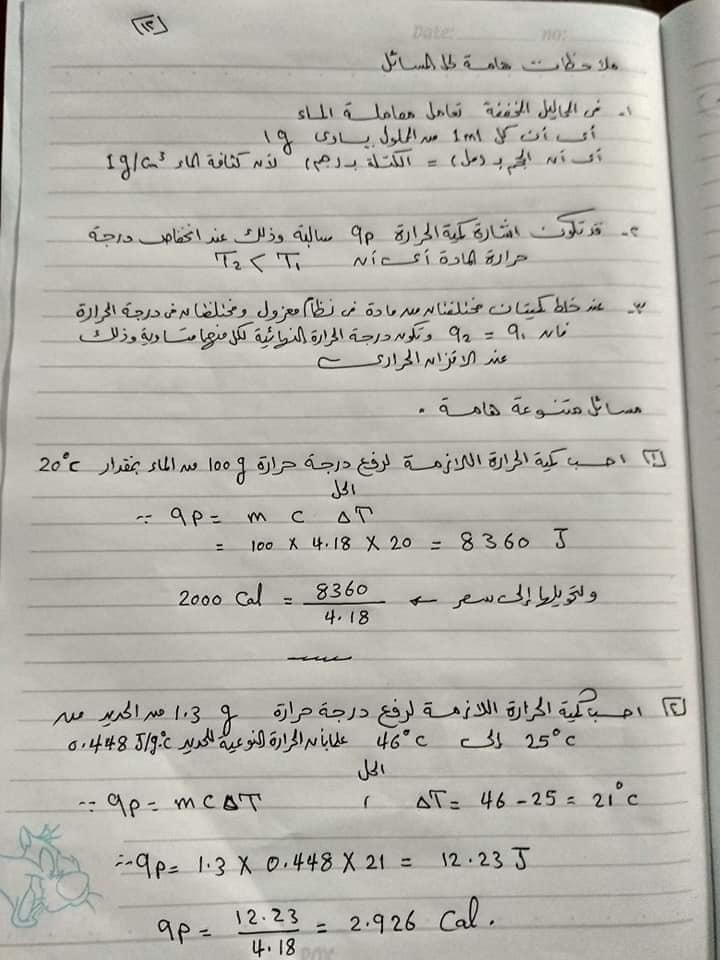 ١٢
Date: no:
ملاحظات هامة لحل المسائل
١- فى المحاليل المخففة تعامل معاملة الماء
أى أن كل 1ml من المحلول يساوى 1g
أى أن الحجم بـ (مل) = الكتلة بـ (جم) لأن كثافة الماء 1g/cm³
٢- قد تكون اشارة كمية الحرارة qp سالبة وذلك عند انخفاض درجة
حرارة المادة أى أن T₂ < T₁
٣- عند خلط كميتان مختلفتان من مادة فى نظام معزول ومختلفتان فى درجة الحرارة
فان q₂ = q₁ وتكون درجة الحرارة النهائية لكل منهما متساوية وذلك
عند الاتزان الحرارى
مسائل متنوعة هامة .
١ احسب كمية الحرارة اللازمة لرفع درجة حرارة 100 g من الماء بمقدار 20°c
الحل
∵ qp = m c ΔT
= 100 × 4.18 × 20 = 8360 J
ولتحويلها إلى سعر ← 8360 / 4.18 = 2000 Cal
٢ احسب كمية الحرارة اللازمة لرفع درجة حرارة 1.3 g من الحديد من
25°c إلى 46°c علما بأن الحرارة النوعية للحديد 0.448 J/g.°c
الحل
∵ qp = m c ΔT ، ΔT = 46 - 25 = 21°c
∴ qp = 1.3 × 0.448 × 21 = 12.23 J
qp = 12.23 / 4.18 = 2.926 Cal.